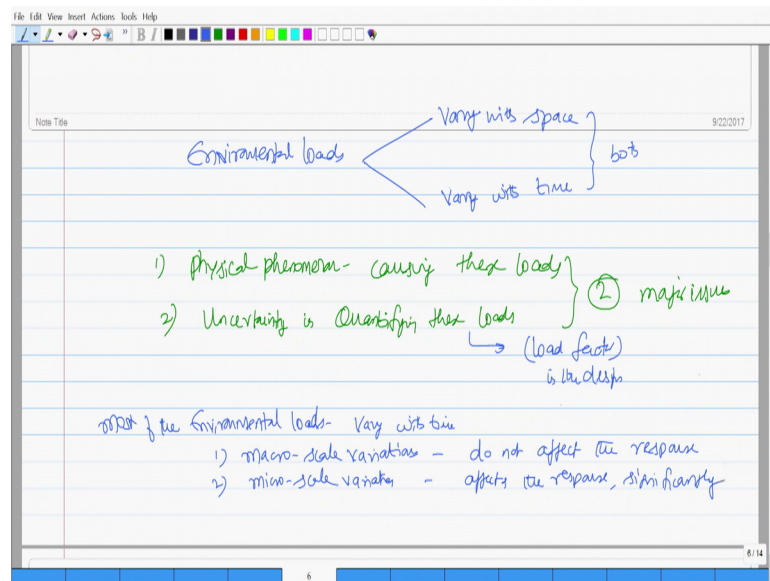 File Edit View Insert Actions Tools Help
B I
Note Title
9/22/2017
Vary with space
Environmental loads
both
Vary with time
1) Physical phenomenon - causing these loads
2) Uncertainty in Quantifying these loads
2 major issues
(load factor)
in the design
most of the Environmental loads - Vary with time
1) macro-scale variations - do not affect the response
2) micro-scale variation - affects the response, significantly
6/14
6